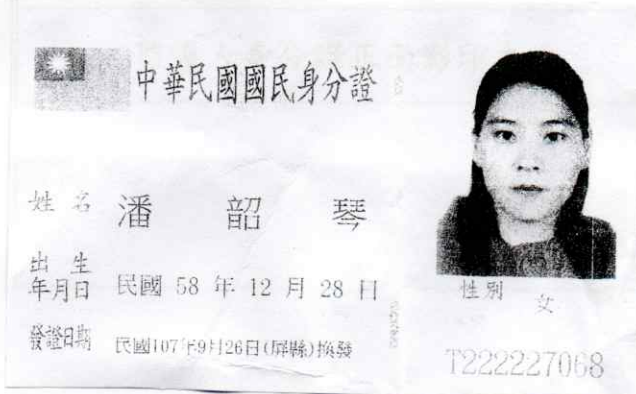 中華民國國民身分證
姓名 潘韶琴
出生年月日 民國 58 年 12 月 28 日
性別 女
發證日期 民國107年9月26日(屏縣)換發
T222227068